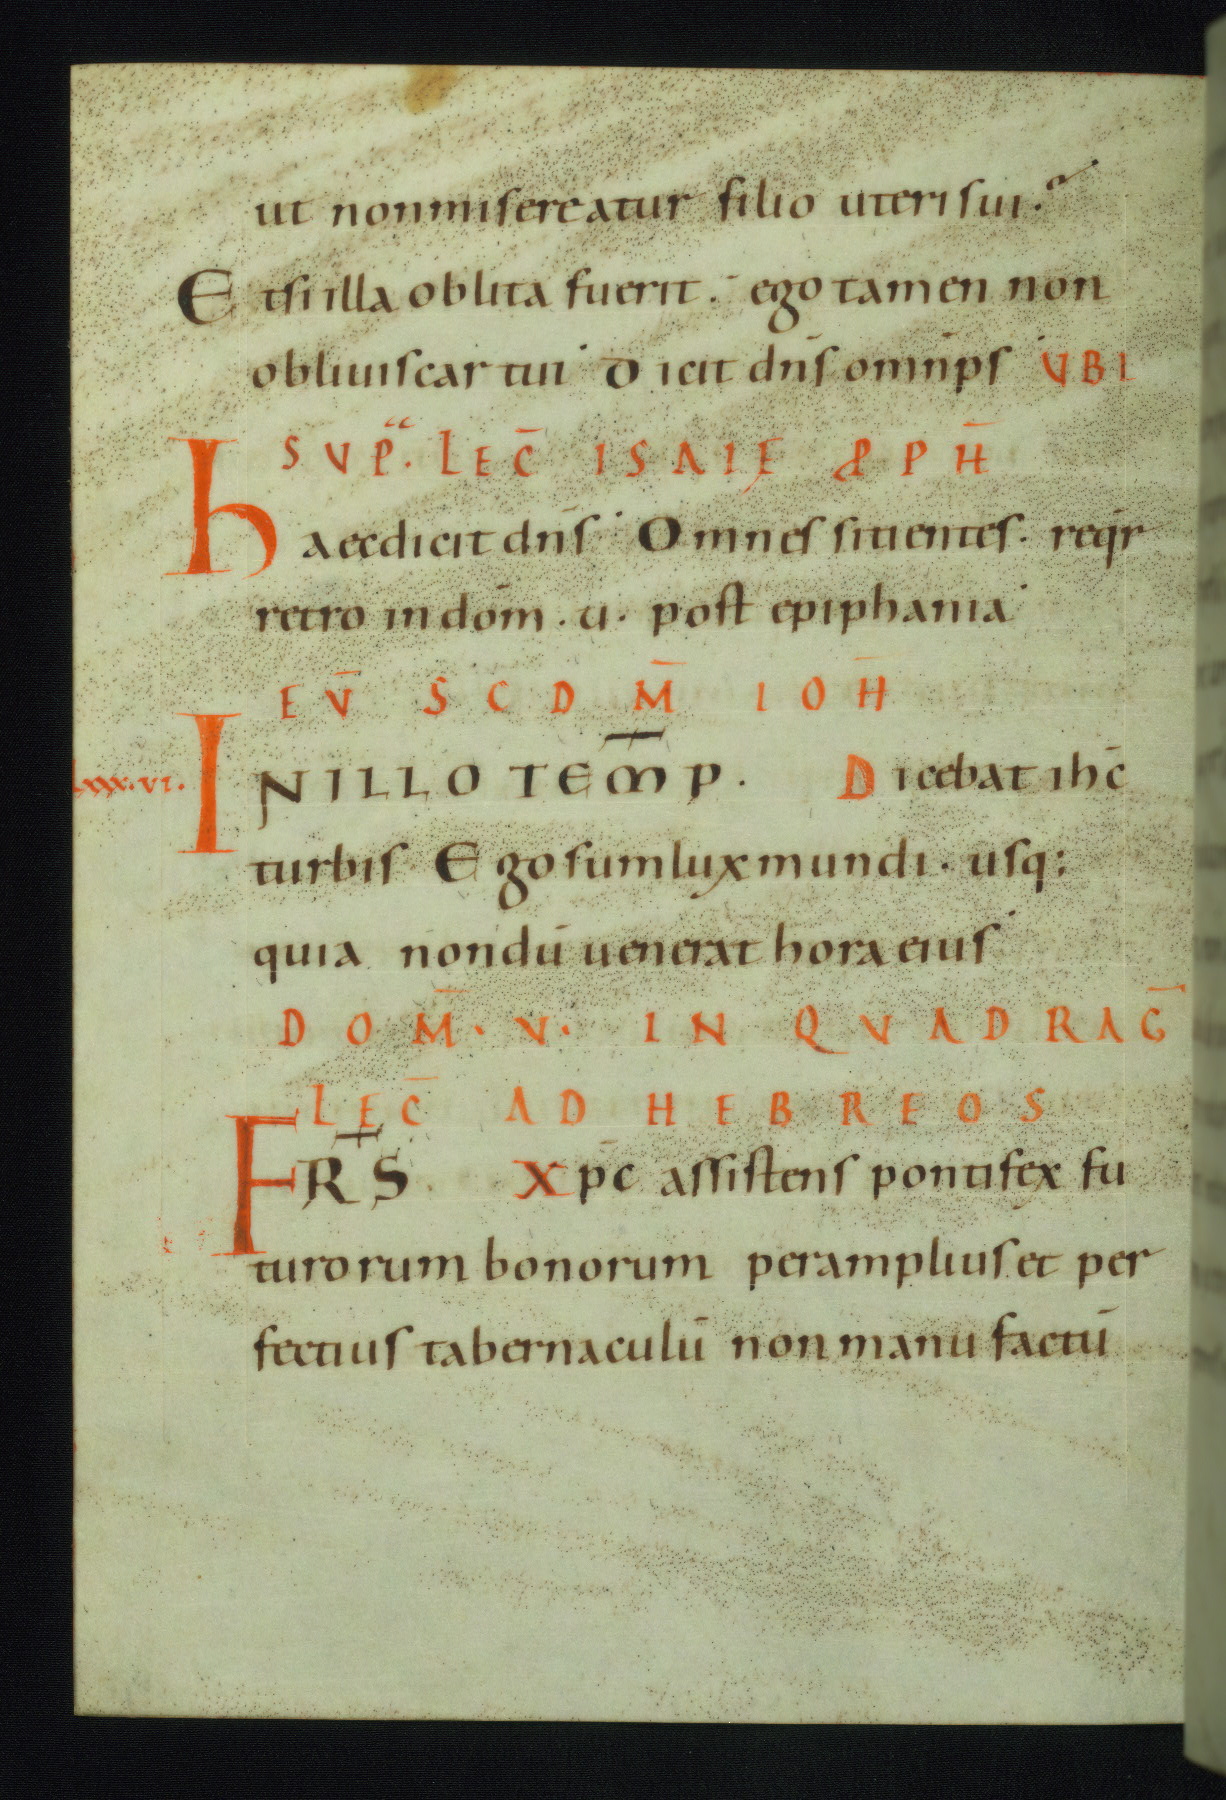 ut non misereatur filio uteri sui.
Et si illa oblita fuerit. ego tamen non
obliuiscar tui Dicit dn̄s omnīps VBI
SVP. LEC̄ ISAIĘ & PH̄
haec dicit dn̄s Omnes sitientes. reqr
retro in dōm .u. post epiphania
EV̄ SCD M̄ IOH̄
lxxx.vi.
IN ILLO TEM̄P. Dicebat ih̄c
turbis Ego sum lux mundi. usq:
quia nondū uenerat hora eius
DOM̄.V. IN QVADRAḠ
LEC̄ AD HEBREOS
FR̄S Xp̄c assistens pontifex fu
turorum bonorum per amplius et per
fectius tabernaculū non manu factū